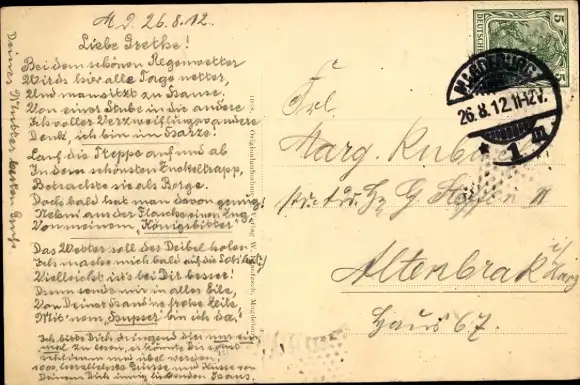 M. d. 26.8.12.
Liebe Grethe!
Bei dem schönen Regenwetter
Wirds hier alle Tage netter,
Und man sitzt zu Hause.
Von einer Stube in die andere
Ich voller Verzweiflung wandere
Denk, ich bin im Harze!
Lauf die Treppe auf und ab
In dem schönsten Zuckeltrapp,
Betrachte sie als Berge.
Doch bald hat man davon genug!
Nehm aus der Flasche einen Zug
Von meinem "Königsbitter"
Das Wetter soll der Deibel holen
Ich mache mich bald auf die Sohlen!
Vielleicht ist's bei Dir besser!
Dann sende mir in aller Eile,
Von Deiner Hand 'ne frohe Zeile
Mit 'nem "Hupser" bin ich da."
Ich bitte Dich dringend dies nur ein
mal zu lesen, es könnte Dir sonst
schlimm und übel werden
1000 herzlichste Grüsse und Küsse von
Deinem Dich innig liebenden Hans.
Deiner Mutter besten Gruß.
DEUTSCHES
5
5
MAGDEBURG
26.8.12.11-12V.
* 1 m
Frl.
Marg.
Altenbrak i/Harz
Haus 67.